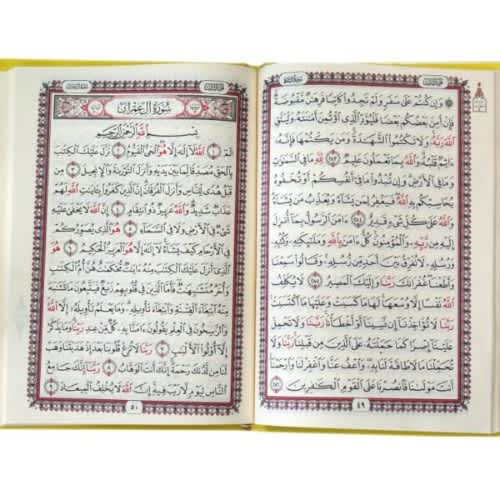 ۞ وَإِن كُنتُمْ عَلَىٰ سَفَرٍ وَلَمْ تَجِدُوا۟ كَاتِبًا فَرِهَٰنٌ مَّقْبُوضَةٌ
فَإِنْ أَمِنَ بَعْضُكُم بَعْضًا فَلْيُؤَدِّ ٱلَّذِى ٱؤْتُمِنَ أَمَٰنَتَهُۥ وَلْيَتَّقِ
ٱللَّهَ رَبَّهُۥ وَلَا تَكْتُمُوا۟ ٱلشَّهَٰدَةَ وَمَن يَكْتُمْهَا فَإِنَّهُۥٓ
ءَاثِمٌ قَلْبُهُۥ وَٱللَّهُ بِمَا تَعْمَلُونَ عَلِيمٌ ٢٨٣ لِّلَّهِ مَا فِى ٱلسَّمَٰوَٰتِ
وَمَا فِى ٱلْأَرْضِ وَإِن تُبْدُوا۟ مَا فِىٓ أَنفُسِكُمْ أَوْ تُخْفُوهُ
يُحَاسِبْكُم بِهِ ٱللَّهُ فَيَغْفِرُ لِمَن يَشَآءُ وَيُعَذِّبُ مَن يَشَآءُ
وَٱللَّهُ عَلَىٰ كُلِّ شَىْءٍ قَدِيرٌ ٢٨٤ ءَامَنَ ٱلرَّسُولُ بِمَآ أُنزِلَ
إِلَيْهِ مِن رَّبِّهِۦ وَٱلْمُؤْمِنُونَ كُلٌّ ءَامَنَ بِٱللَّهِ وَمَلَٰٓئِكَتِهِۦ وَكُتُبِهِۦ
وَرُسُلِهِۦ لَا نُفَرِّقُ بَيْنَ أَحَدٍ مِّن رُّسُلِهِۦ وَقَالُوا۟ سَمِعْنَا
وَأَطَعْنَا غُفْرَانَكَ رَبَّنَا وَإِلَيْكَ ٱلْمَصِيرُ ٢٨٥ لَا يُكَلِّفُ
ٱللَّهُ نَفْسًا إِلَّا وُسْعَهَا لَهَا مَا كَسَبَتْ وَعَلَيْهَا مَا ٱكْتَسَبَتْ
رَبَّنَا لَا تُؤَاخِذْنَآ إِن نَّسِينَآ أَوْ أَخْطَأْنَا رَبَّنَا وَلَا تَحْمِلْ
عَلَيْنَآ إِصْرًا كَمَا حَمَلْتَهُۥ عَلَى ٱلَّذِينَ مِن قَبْلِنَا رَبَّنَا وَلَا
تُحَمِّلْنَا مَا لَا طَاقَةَ لَنَا بِهِۦ وَٱعْفُ عَنَّا وَٱغْفِرْ لَنَا وَٱرْحَمْنَآ
أَنتَ مَوْلَىٰنَا فَٱنصُرْنَا عَلَى ٱلْقَوْمِ ٱلْكَٰفِرِينَ ٢٨٦
٤٩
سُورَةُ آلِ عِمْرَانَ
بِسْمِ ٱللَّهِ ٱلرَّحْمَٰنِ ٱلرَّحِيمِ
الٓمٓ ١ ٱللَّهُ لَآ إِلَٰهَ إِلَّا هُوَ ٱلْحَىُّ ٱلْقَيُّومُ ٢ نَزَّلَ عَلَيْكَ ٱلْكِتَٰبَ
بِٱلْحَقِّ مُصَدِّقًا لِّمَا بَيْنَ يَدَيْهِ وَأَنزَلَ ٱلتَّوْرَىٰةَ وَٱلْإِنجِيلَ ٣ مِن
قَبْلُ هُدًى لِّلنَّاسِ وَأَنزَلَ ٱلْفُرْقَانَ إِنَّ ٱلَّذِينَ كَفَرُوا۟ بِـَٔايَٰتِ ٱللَّهِ لَهُمْ
عَذَابٌ شَدِيدٌ وَٱللَّهُ عَزِيزٌ ذُو ٱنتِقَامٍ ٤ إِنَّ ٱللَّهَ لَا يَخْفَىٰ عَلَيْهِ
شَىْءٌ فِى ٱلْأَرْضِ وَلَا فِى ٱلسَّمَآءِ ٥ هُوَ ٱلَّذِى يُصَوِّرُكُمْ
فِى ٱلْأَرْحَامِ كَيْفَ يَشَآءُ لَآ إِلَٰهَ إِلَّا هُوَ ٱلْعَزِيزُ ٱلْحَكِيمُ ٦ هُوَ
ٱلَّذِىٓ أَنزَلَ عَلَيْكَ ٱلْكِتَٰبَ مِنْهُ ءَايَٰتٌ مُّحْكَمَٰتٌ هُنَّ أُمُّ ٱلْكِتَٰبِ
وَأُخَرُ مُتَشَٰبِهَٰتٌ فَأَمَّا ٱلَّذِينَ فِى قُلُوبِهِمْ زَيْغٌ فَيَتَّبِعُونَ مَا تَشَٰبَهَ
مِنْهُ ٱبْتِغَآءَ ٱلْفِتْنَةِ وَٱبْتِغَآءَ تَأْوِيلِهِۦ وَمَا يَعْلَمُ تَأْوِيلَهُۥٓ إِلَّا ٱللَّهُ
وَٱلرَّٰسِخُونَ فِى ٱلْعِلْمِ يَقُولُونَ ءَامَنَّا بِهِۦ كُلٌّ مِّنْ عِندِ رَبِّنَا وَمَا يَذَّكَّرُ
إِلَّآ أُو۟لُوا۟ ٱلْأَلْبَٰبِ ٧ رَبَّنَا لَا تُزِغْ قُلُوبَنَا بَعْدَ إِذْ هَدَيْتَنَا وَهَبْ
لَنَا مِن لَّدُنكَ رَحْمَةً إِنَّكَ أَنتَ ٱلْوَهَّابُ ٨ رَبَّنَآ إِنَّكَ جَامِعُ
ٱلنَّاسِ لِيَوْمٍ لَّا رَيْبَ فِيهِ إِنَّ ٱللَّهَ لَا يُخْلِفُ ٱلْمِيعَادَ ٩